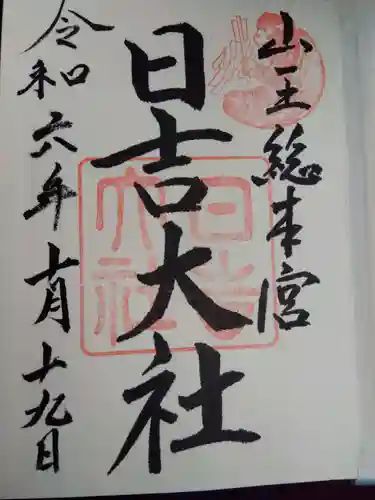 山王総本宮
日吉大社
令和六年十月十九日
日吉大社